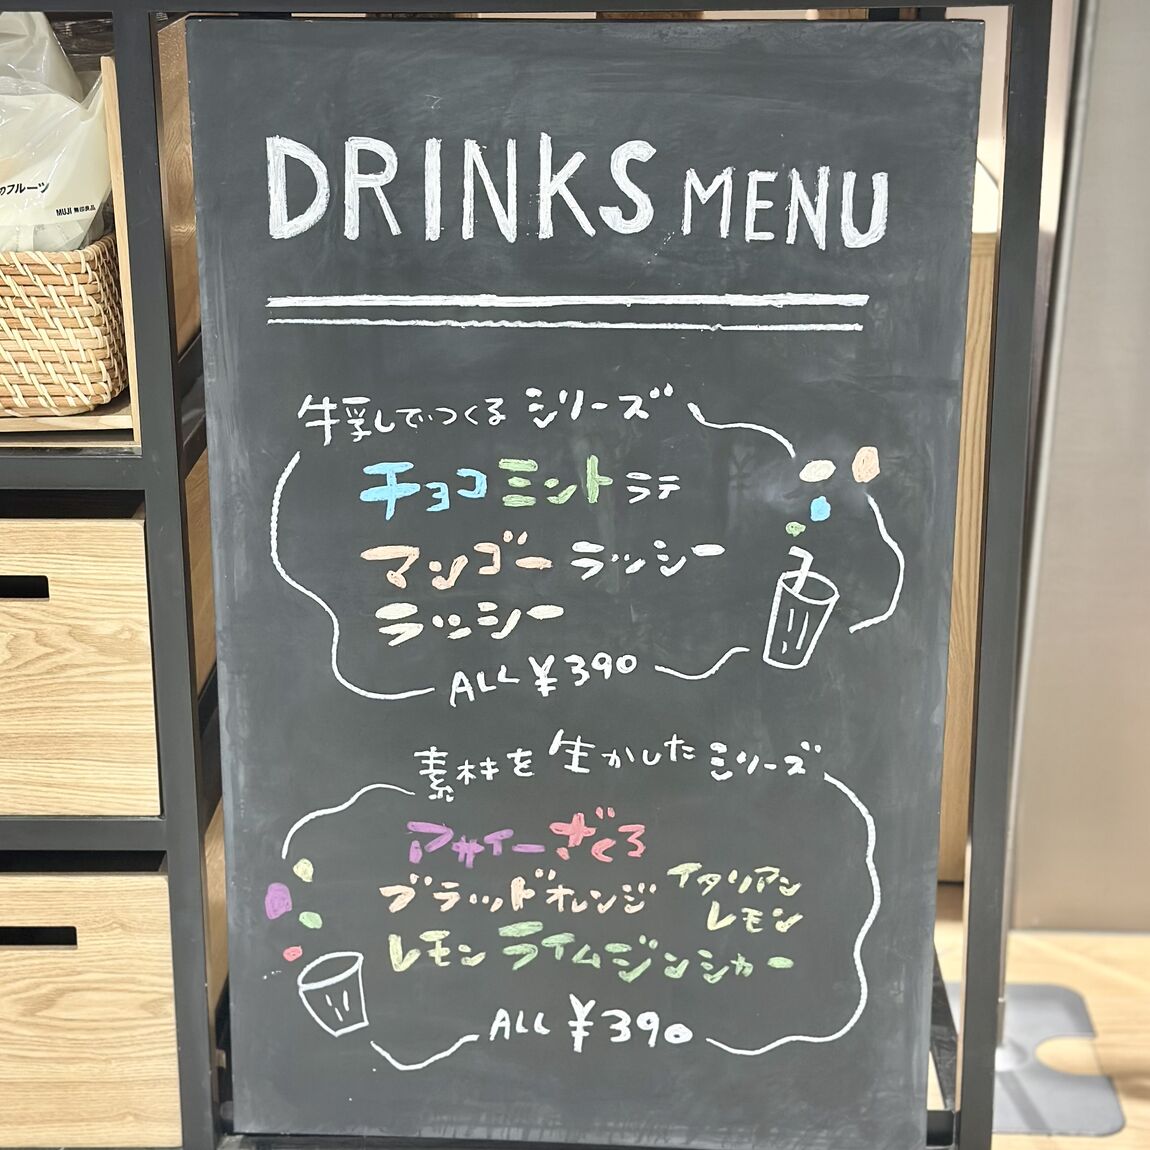 のフルーツ
MUJI 無印良品
DRINKS MENU
牛乳でつくる シリーズ
チョコミント ラテ
マンゴー ラッシー
ラッシー
ALL ¥390
素材を 生かした シリーズ
アサイーざくろ
ブラッドオレンジ
イタリアン
レモン
レモン ライムジンジャー
ALL ¥390